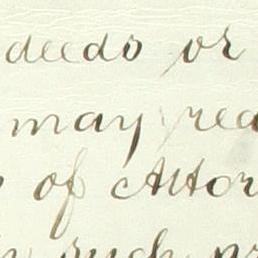 deeds or
may rea
of Attor
such